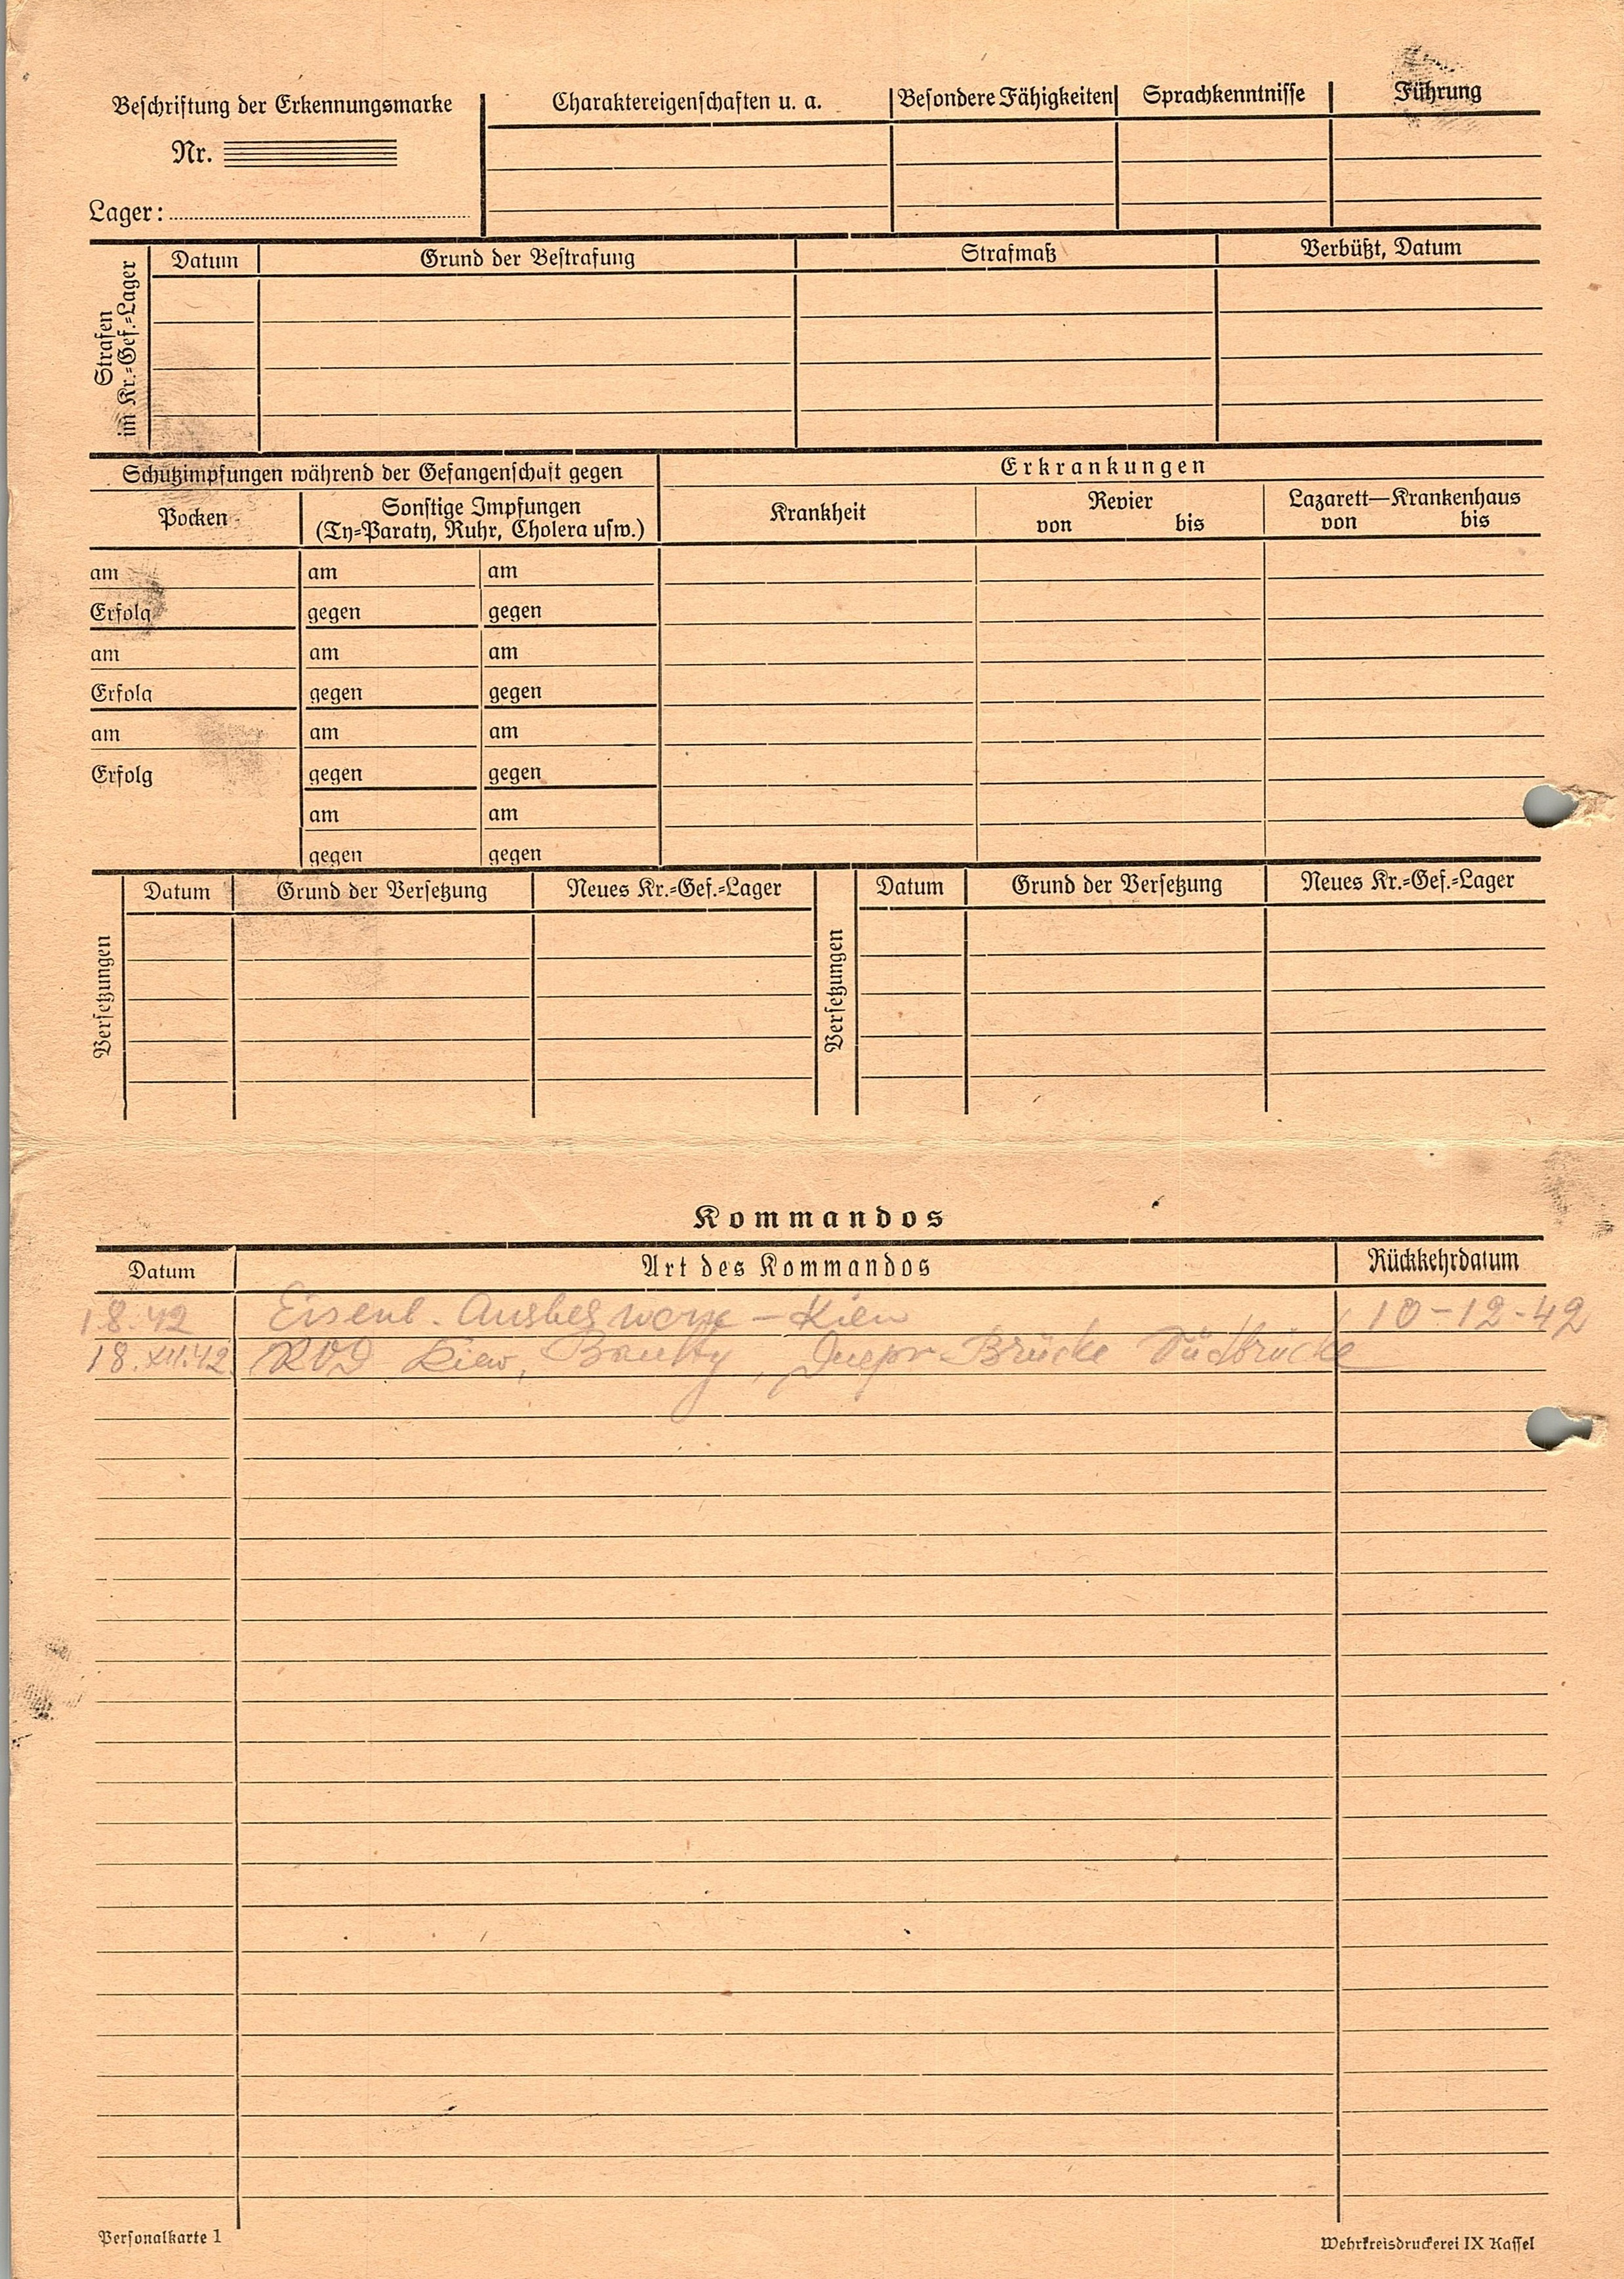 Beschriftung der Erkennungsmarke
Nr.
Lager:
Charaktereigenschaften u. a.
Besondere Fähigkeiten
Sprachkenntnisse
Führung
Strafen
im Kr.=Gef.=Lager
Datum
Grund der Bestrafung
Strafmaß
Verbüßt, Datum
Schutzimpfungen während der Gefangenschaft gegen
Erkrankungen
Pocken
Sonstige Impfungen
(Ty=Paraty, Ruhr, Cholera usw.)
Krankheit
Revier
von bis
Lazarett—Krankenhaus
von bis
am am am
Erfolg gegen gegen
am am am
Erfolg gegen gegen
am am am
Erfolg gegen gegen
am am
gegen gegen
Versetzungen
Datum
Grund der Versetzung
Neues Kr.=Gef.=Lager
Versetzungen
Datum
Grund der Versetzung
Neues Kr.=Gef.=Lager
Kommandos
Datum
Art des Kommandos
Rückkehrdatum
1.8.42 Eisenb. Ausbes – Kiew 10-12-42
18.XII.42 Kiew, Dnepr-Brücke Südbrücke
Personalkarte 1
Wehrkreisdruckerei IX Kassel